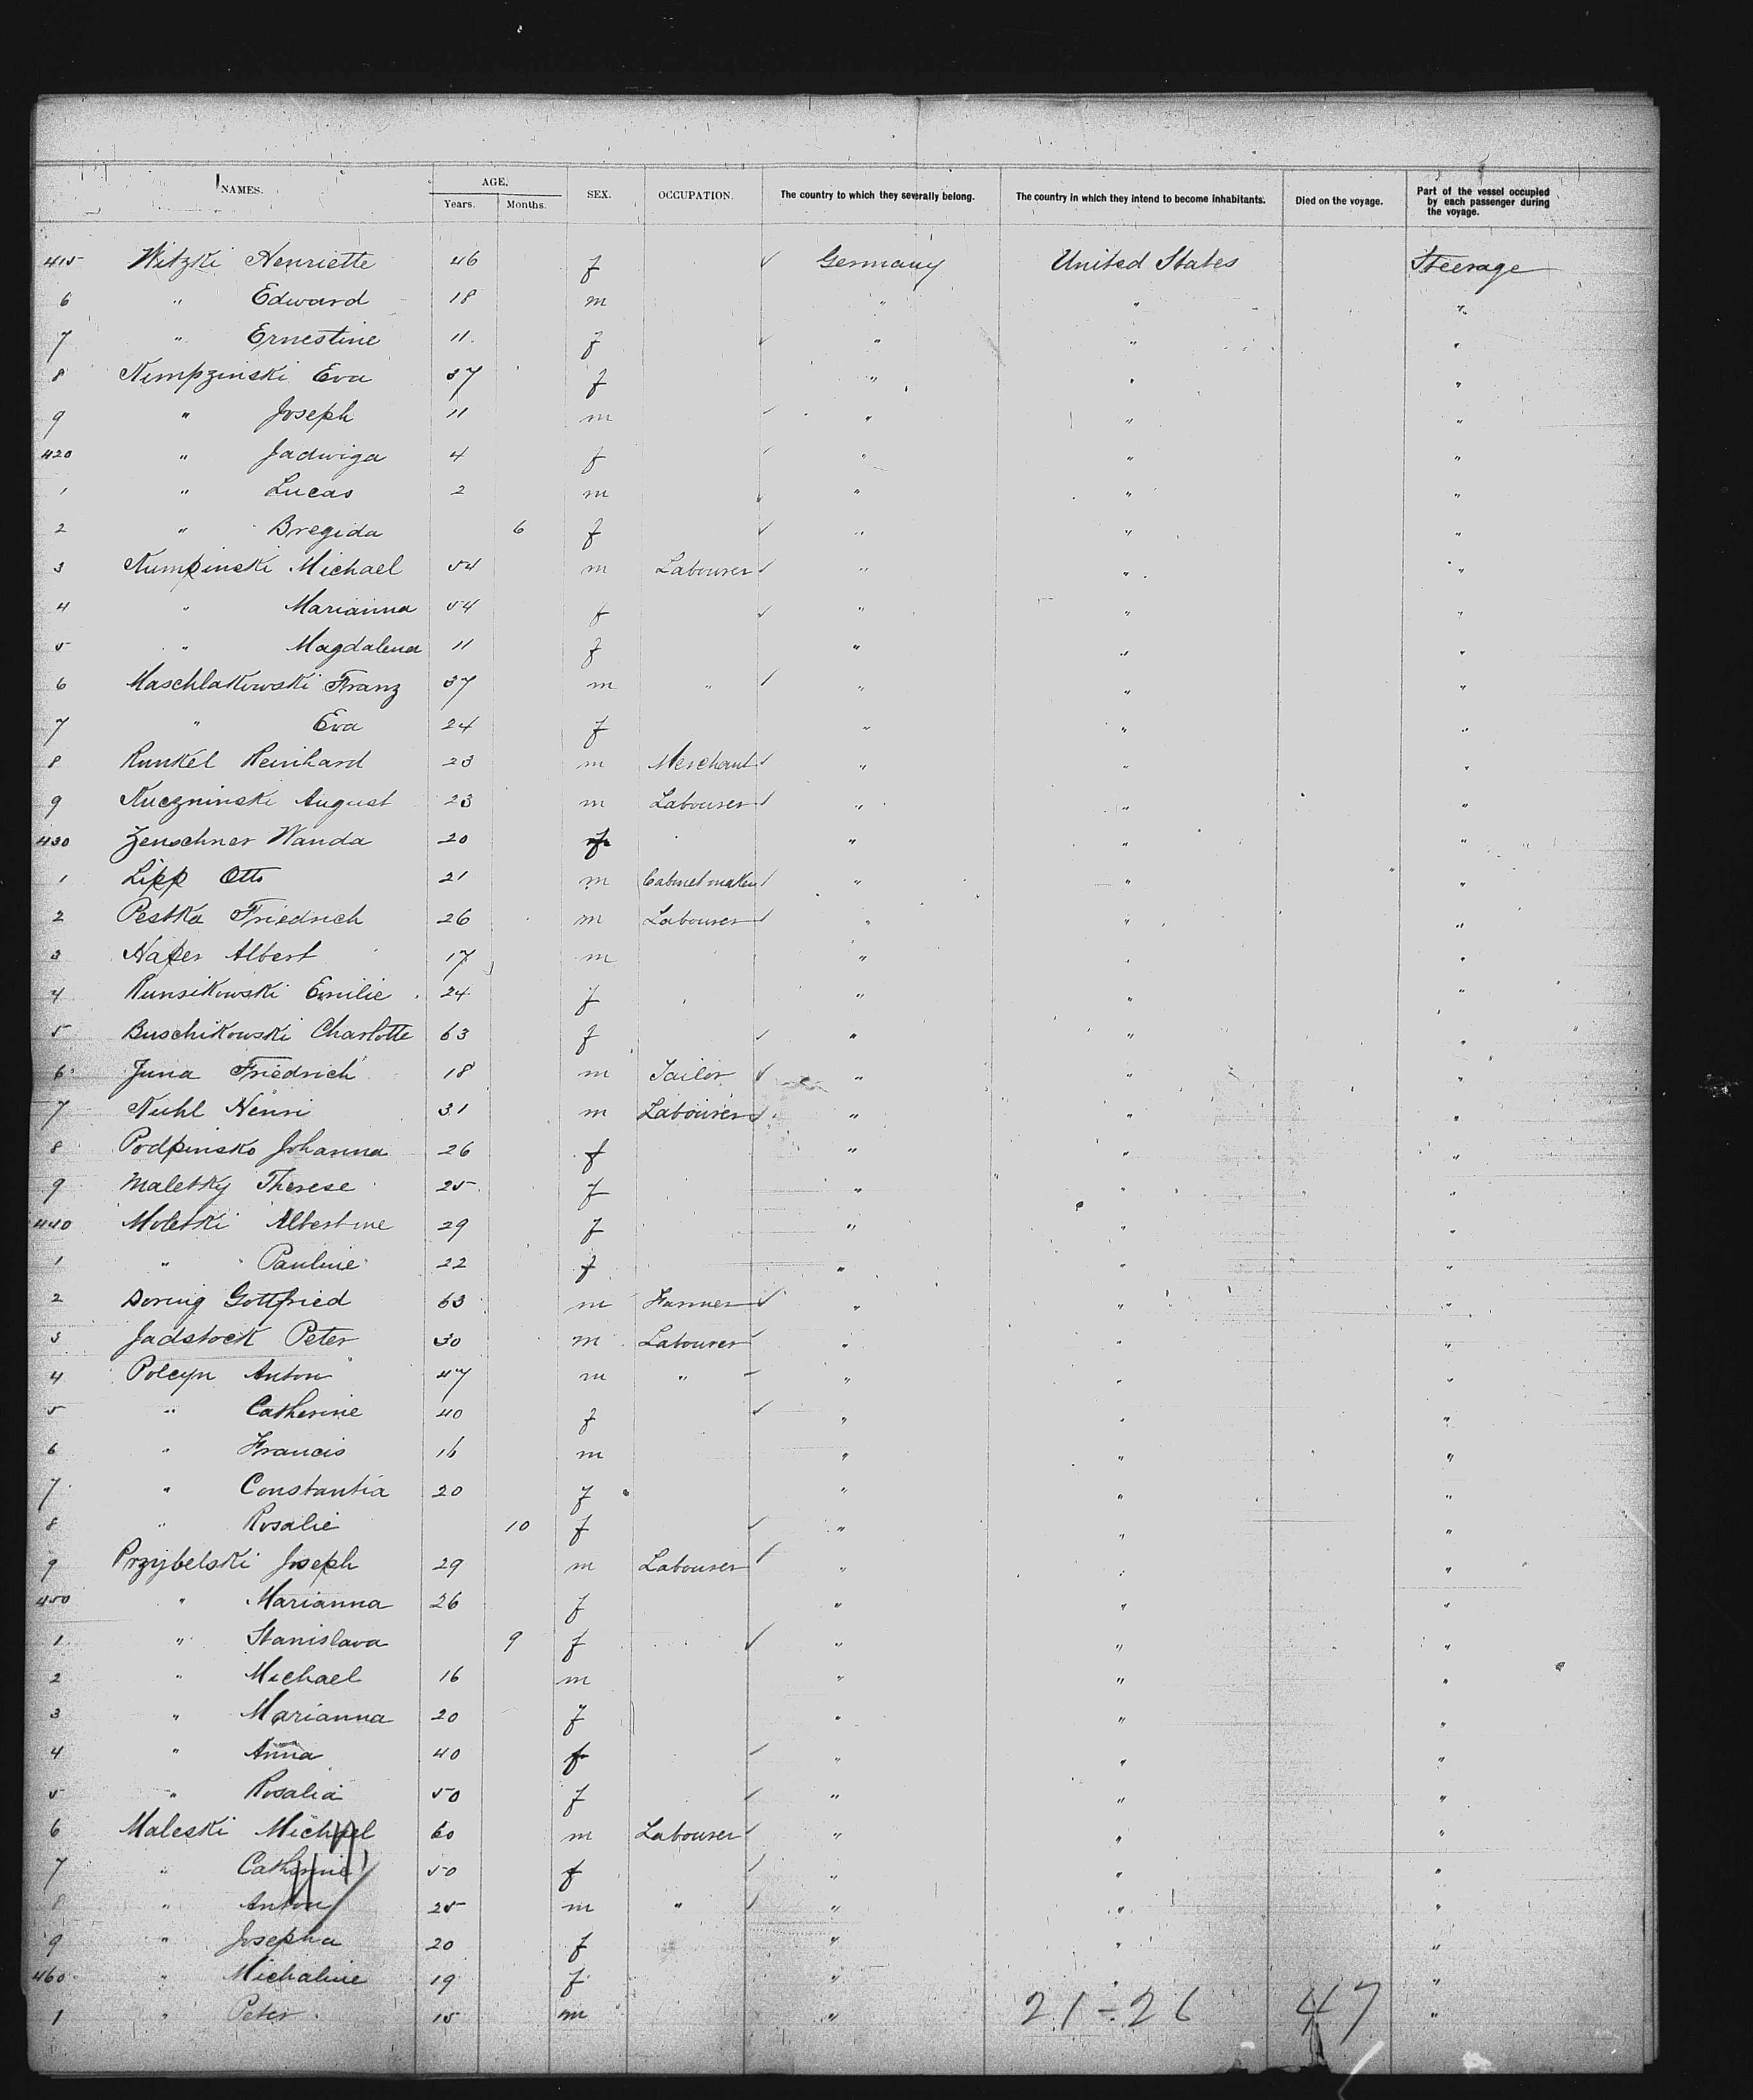 NAMES. AGE. SEX. OCCUPATION. The country to which they severally belong. The country in which they intend to become inhabitants. Died on the voyage. Part of the vessel occupied by each passenger during the voyage.
Years. Months.
415 Witzki Henriette 46 f ✓ Germany United States Steerage
6 " Edward 18 m " " "
7 " Ernestine 11 f ✓ " " "
8 Kempzinski Eva 37 f " " "
9 " Joseph 11 m ✓ " " "
420 " Jadwiga 4 f ✓ " " "
1 " Lucas 2 m ✓ " " "
2 " Bregida 6 f ✓ " " "
3 Kumpinski Michael 54 m Labourer ✓ " " "
4 " Marianna 54 f ✓ " " "
5 " Magdalena 11 f " " "
6 Maschlakowski Franz 37 m " ✓ " " "
7 " Eva 24 f " " "
8 Runkel Reinhard 23 m Merchant ✓ " " "
9 Kuczninski August 23 m Labourer ✓ " " "
430 Zenschner Wanda 20 f " " "
1 Lipp Otto 21 m Cabinet maker ✓ " " "
2 Pestka Friedrich 26 m Labourer ✓ " " "
3 Hafer Albert 17 m " " "
4 Runsikowski Emilie 24 f " " "
5 Buschikowski Charlotte 63 f ✓ " " "
6 Juna Friedrich 18 m Tailor ✓ " " "
7 Kuhl Henri 31 m Labourer ✓ " " "
8 Podpinsko Johanna 26 f " " "
9 Maletky Therese 25 f " " "
440 Moletki Albertine 29 f " " "
1 " Pauline 22 f " " "
2 Doring Gottfried 63 m Farmer ✓ " " "
3 Jadstock Peter 30 m Labourer ✓ " " "
4 Polcyn Anton 47 m " " " "
5 " Catherine 40 f ✓ " " "
6 " Francis 16 m " " "
7 " Constantia 20 f " " "
8 " Rosalie 10 f ✓ " " "
9 Przybelski Joseph 29 m Labourer ✓ " " "
450 " Marianna 26 f " " "
1 " Stanislava 9 f ✓ " " "
2 " Michael 16 m " " "
3 " Marianna 20 f " " "
4 " Anna 40 f ✓ " " "
5 " Rosalia 50 f ✓ " " "
6 Maleski Michael 60 m Labourer ✓ " " "
7 " Catherine 50 f ✓ " " "
8 " Anton 25 m " ✓ " " "
9 " Josepha 20 f " " "
460 " Michaline 19 f " " "
1 " Peter 15 m " 21-26 47 "